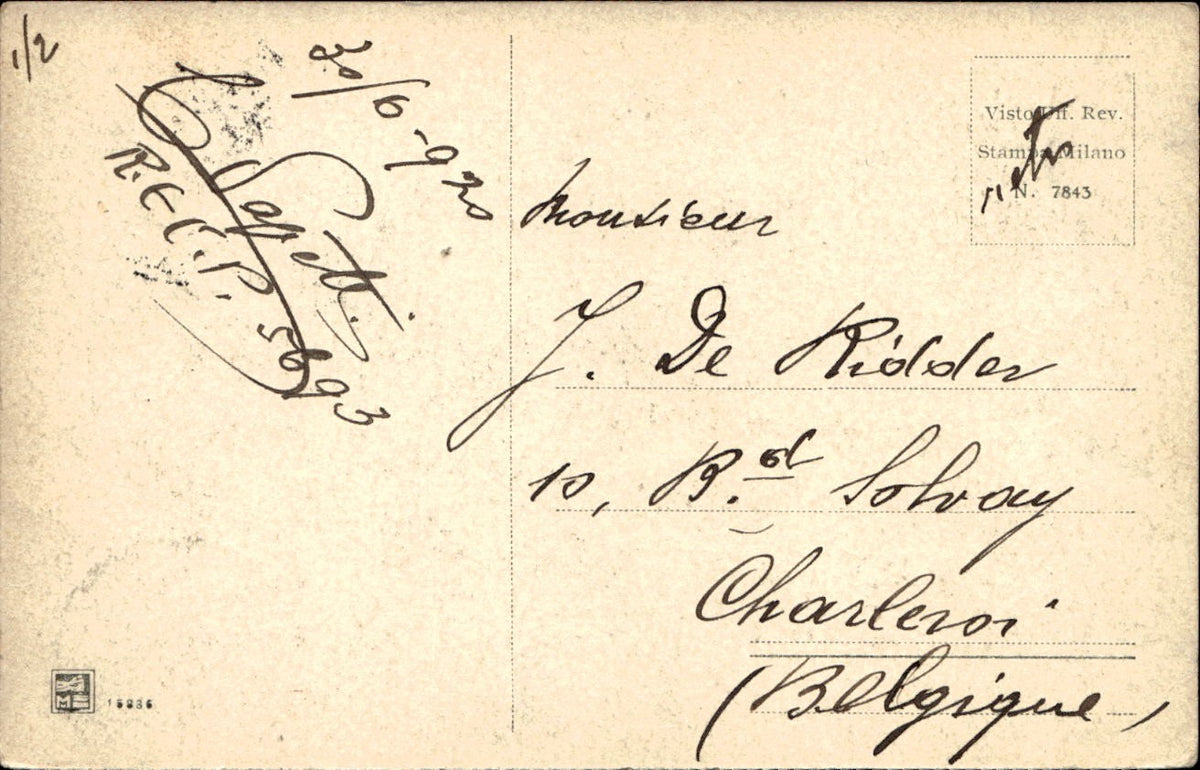 1/2
30/6-920
R.E C.P. 5693
Visto Uff. Rev.
Stampa Milano
N. 7843
Monsieur
J. De Ridder
10, B.d Solvay
Charleroi
(Belgique)
15836